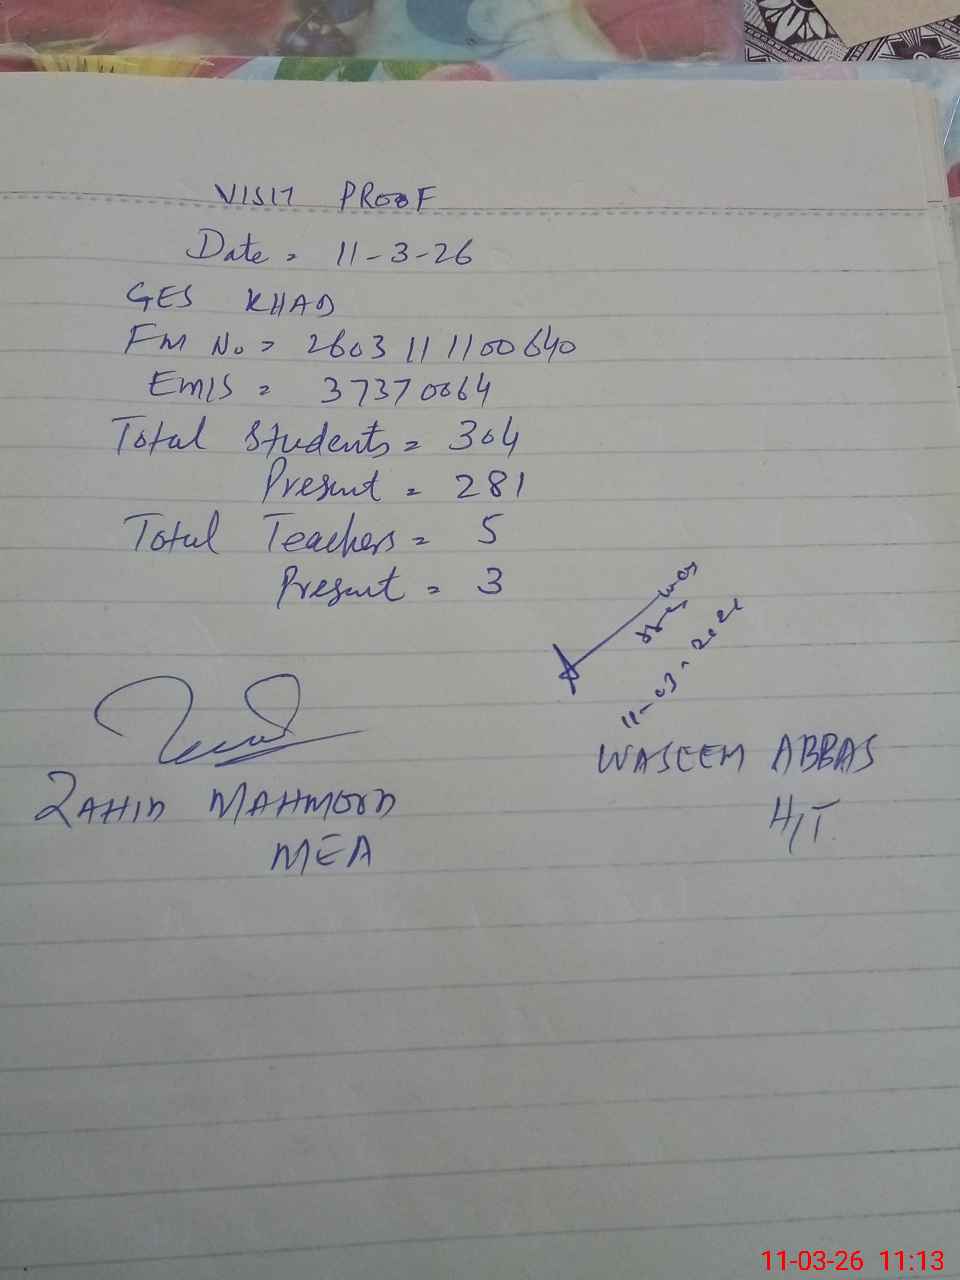 VISIT PROOF
Date = 11-3-26
GES KHAD
FM No = 2603 11 1100640
EMIS = 37370064
Total Students = 304
Present = 281
Total Teachers = 5
Present = 3
11-03-2026
ZAHID MAHMOOD
MEA
WASEEM ABBAS
H/T
11-03-26 11:13